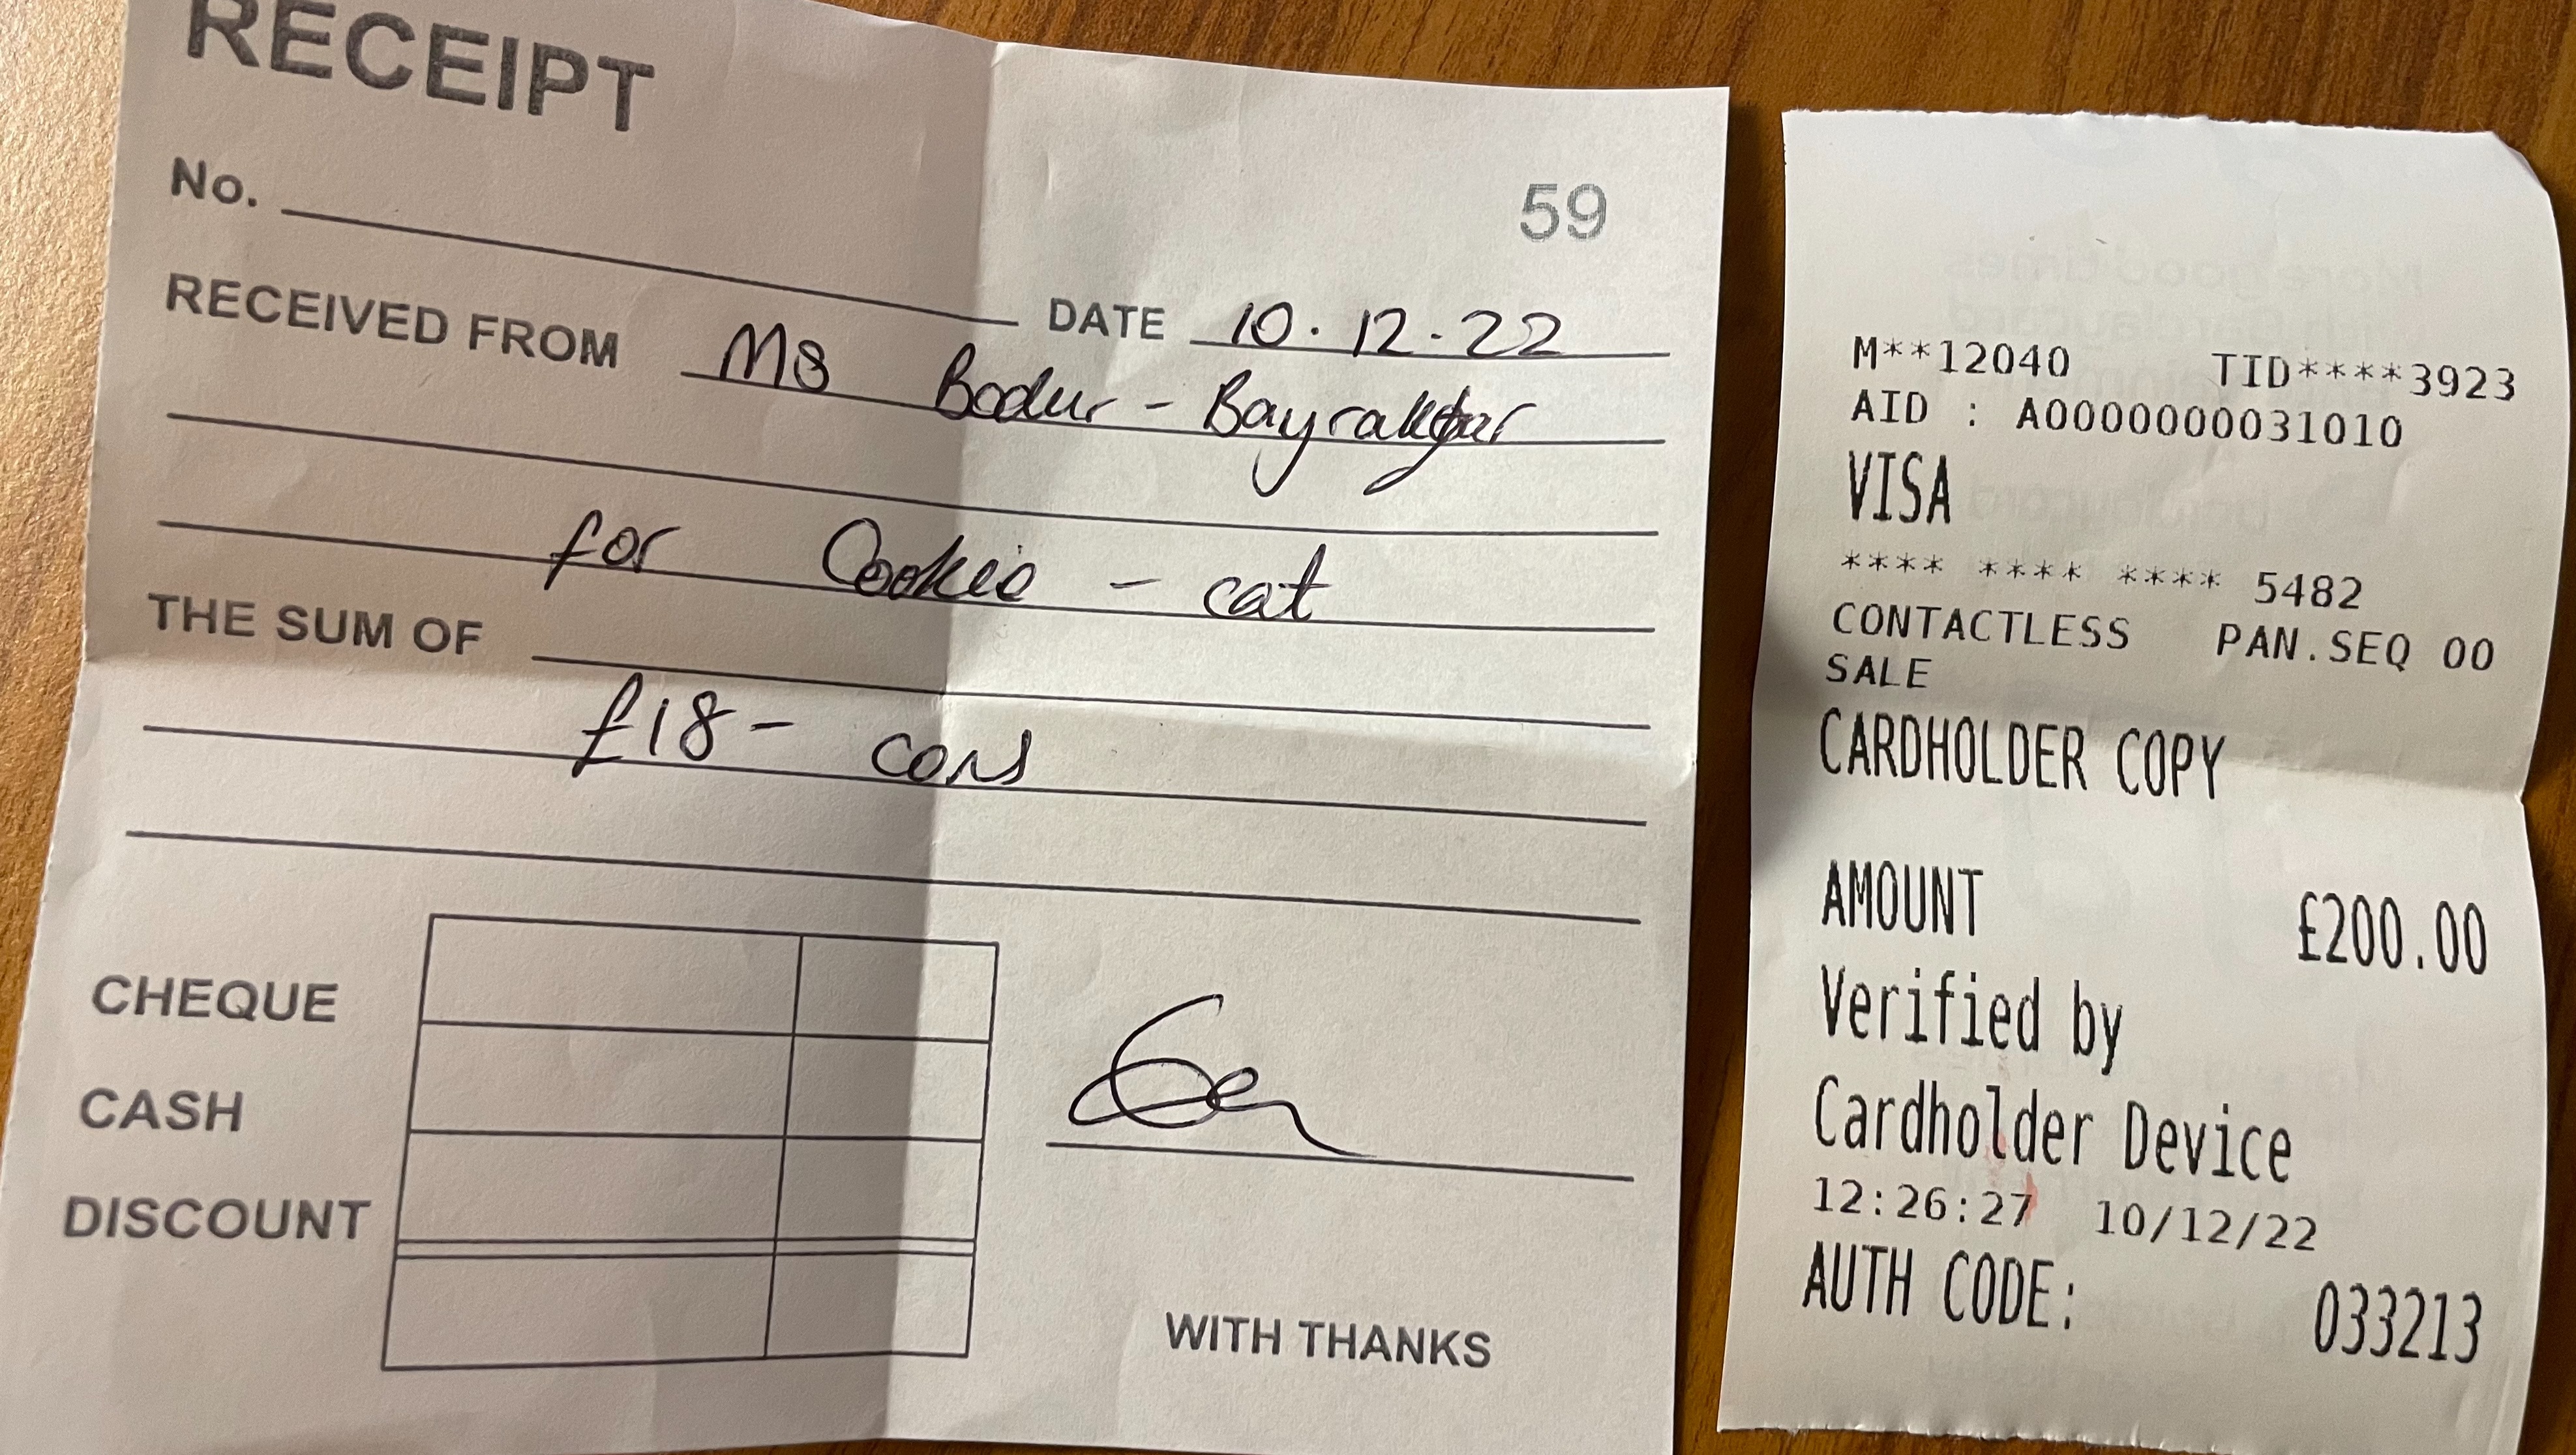 RECEIPT
59
No.
DATE 10.12.22
RECEIVED FROM Ms Bodur - Bayraktar
for Cookie - cat
THE SUM OF
£18 - cons
CHEQUE
CASH
DISCOUNT
WITH THANKS
M**12040 TID****3923
AID : A0000000031010
VISA
**** **** **** 5482
CONTACTLESS PAN.SEQ 00
SALE
CARDHOLDER COPY
AMOUNT £200.00
Verified by
Cardholder Device
12:26:27 10/12/22
AUTH CODE: 033213